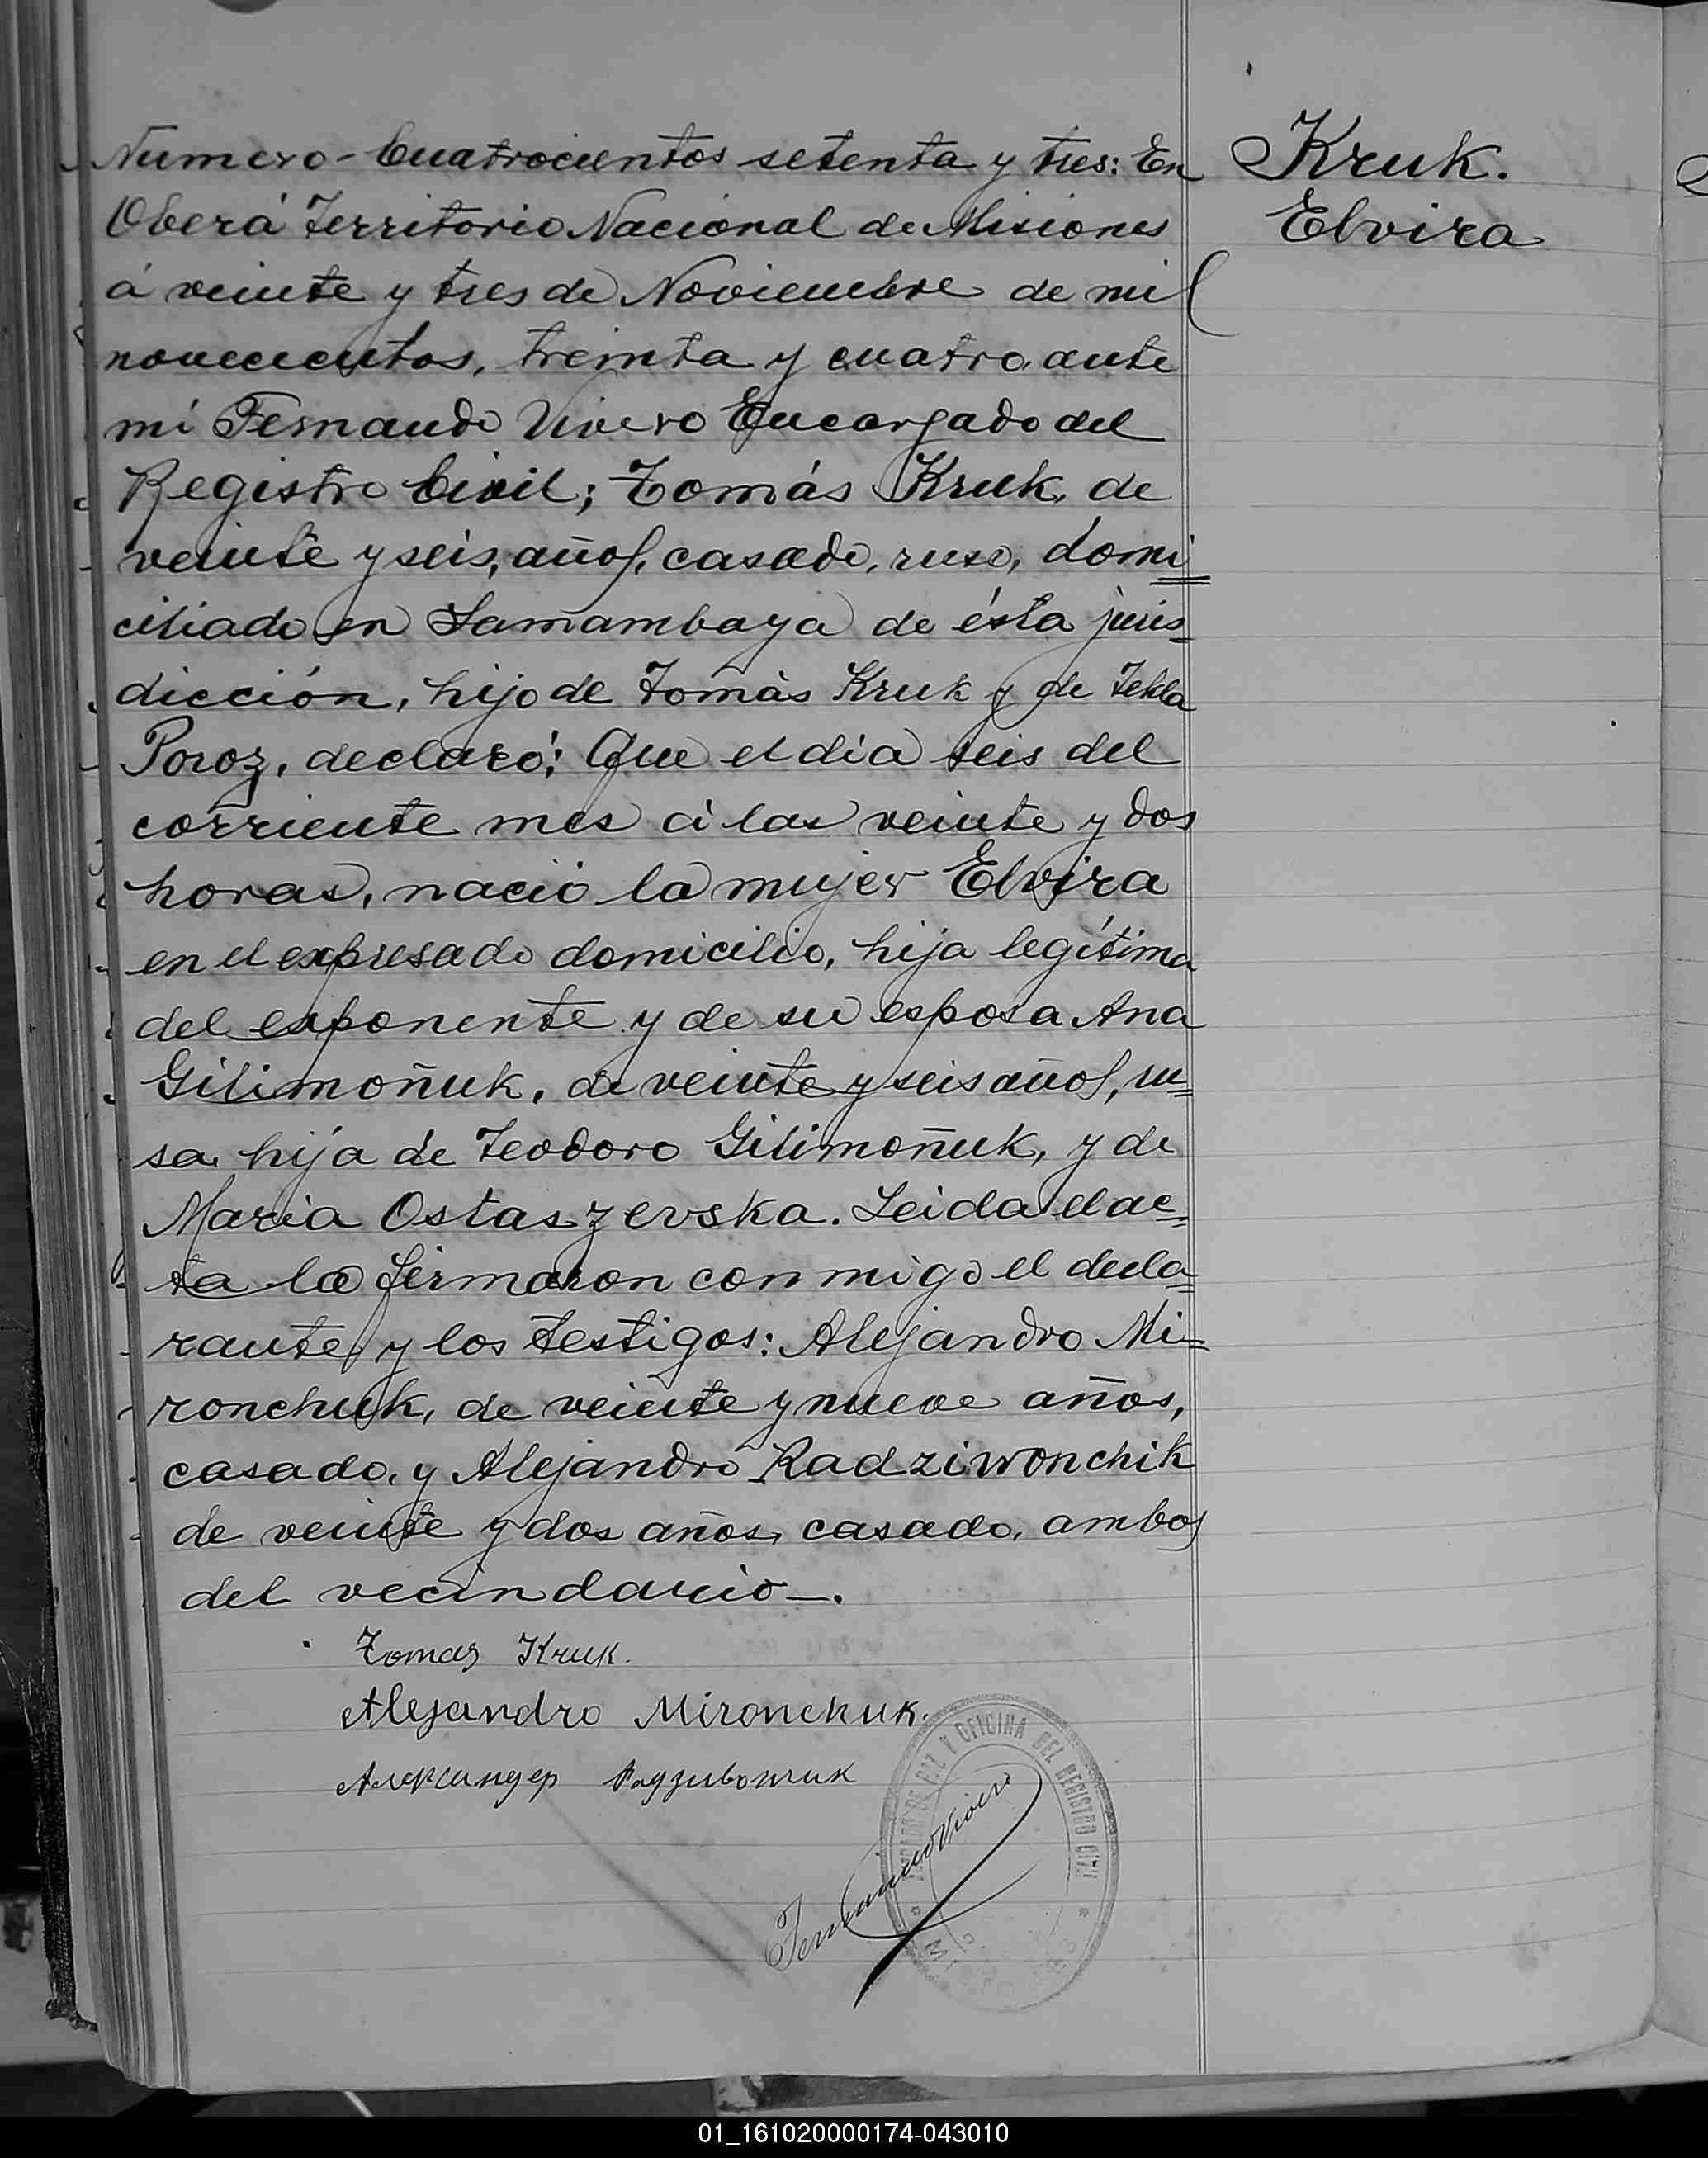 Numero-Cuatrocientos setenta y tres: En
Oberá Territorio Nacional de Misiones
á veinte y tres de Noviembre de mil
novecientos, treinta y cuatro, ante
mí Fernando Vivero Encargado del
Registro Civil; Tomás Kruk, de
veinte y seis, años, casado, ruso, domi=
ciliado en Samambaya de ésta juris=
dicción, hijo de Tomás Kruk y de Tekla
Poroz, declaró: Que el día seis del
corriente mes á las veinte y dos
horas, nació la mujer Elvira
en el expresado domicilio, hija legítima
del exponente y de su esposa Ana
Gilimoñuk, de veinte y seis años, ru=
sa, hija de Teodoro Gilimoñuk, y de
Maria Ostaszevska. Leida el ac=
ta la firmaron conmigo el decla=
rante y los testigos: Alejandro Mi=
ronchuk, de veinte y nueve años,
casado, y Alejandro Radziwonchik
de veinte y dos años, casado, ambos
del vecindario—.
Tomas Kruk.
Alejandro Mironchuk.
Александер Радзивончик
Fernando Vivero
JUZGADO DE PAZ Y OFICINA DEL REGISTRO CIVIL
Kruk.
Elvira
01_161020000174-043010